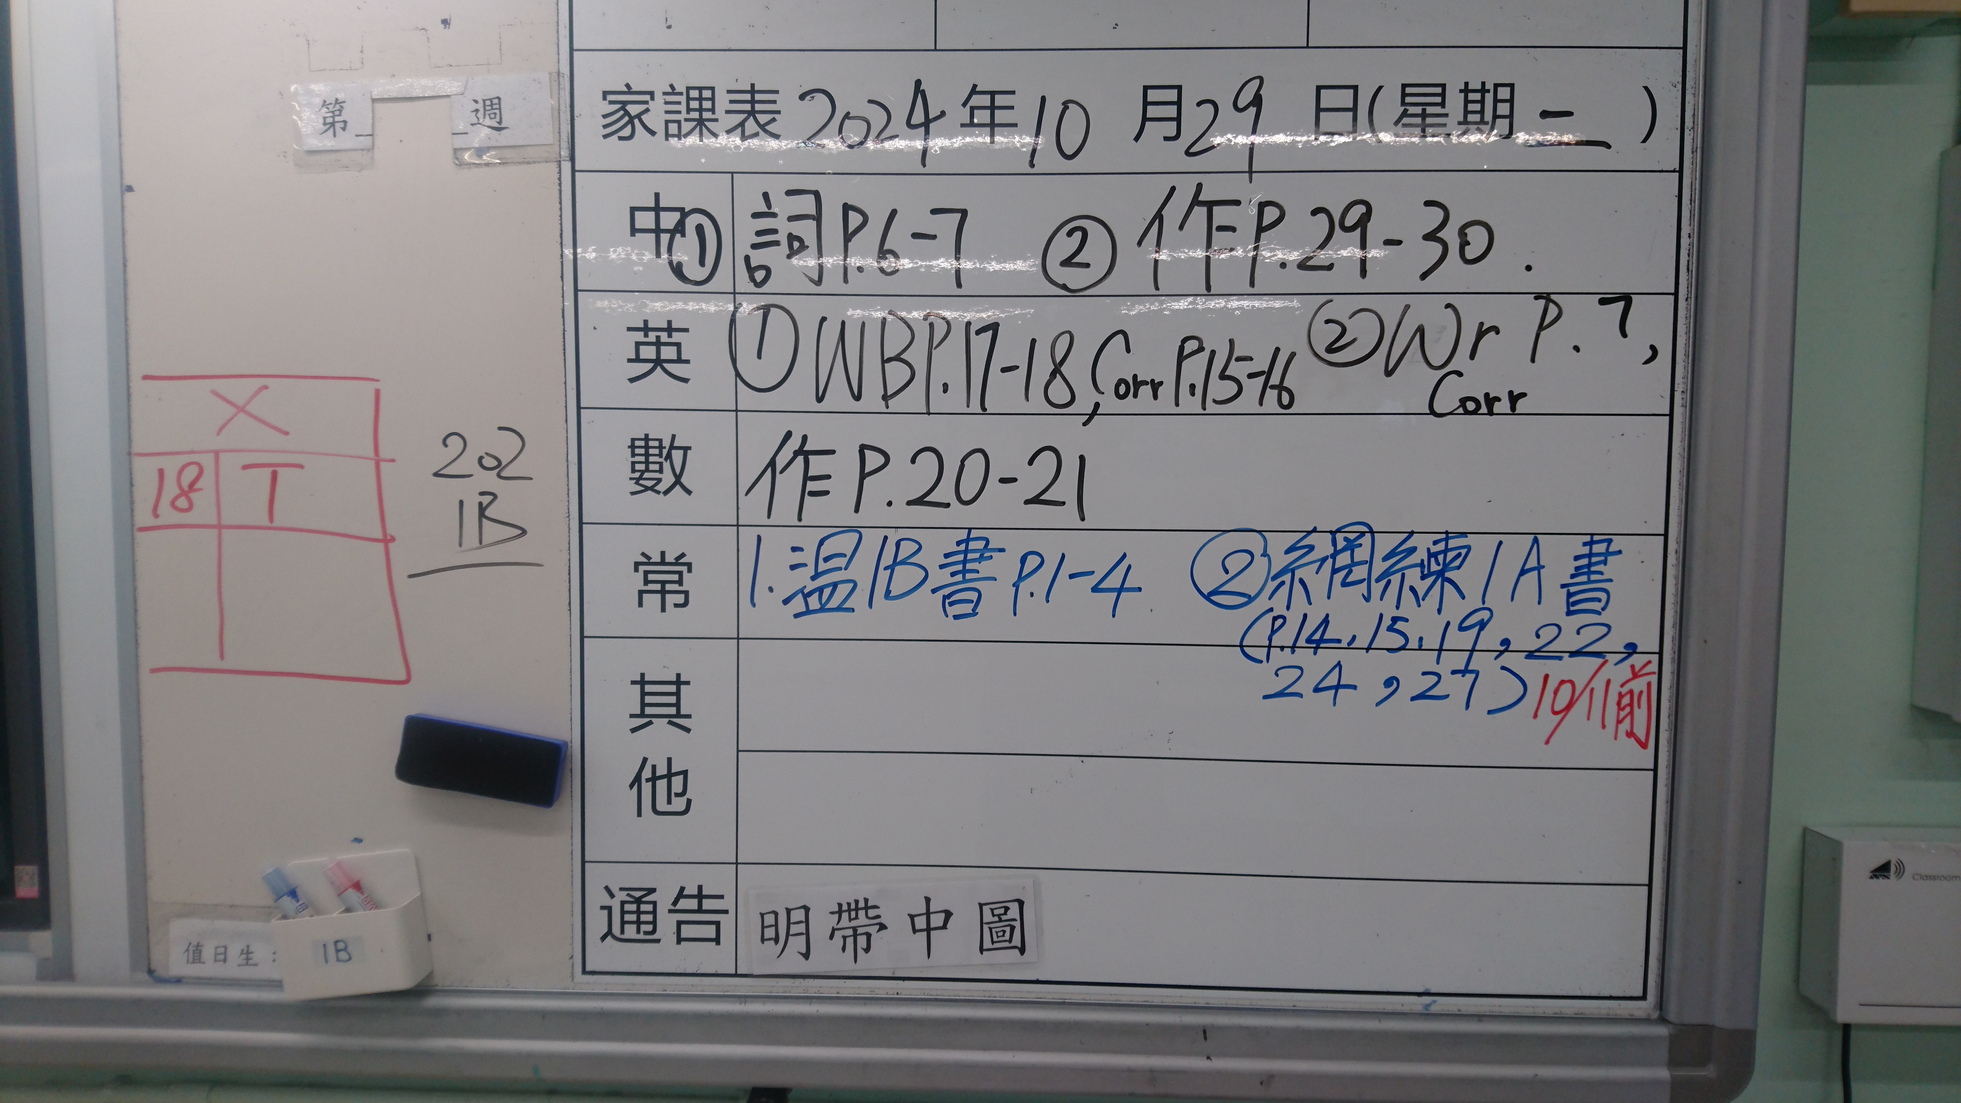 第_ _週
家課表 2024年10月29日(星期二)
中 ① 詞P.6-7 ② 作P.29-30.
英 ① WBP.17-18, Corr P.15-16 ② Wr P.7,
Corr
數 作P.20-21
常 1.溫1B書P.1-4 ② 網練1A書
(P.14.15.19,22,
24,27) 10/11前
其他
通告 明帶中圖
X
18 T
202
1B
值日生: 1B
Classroom